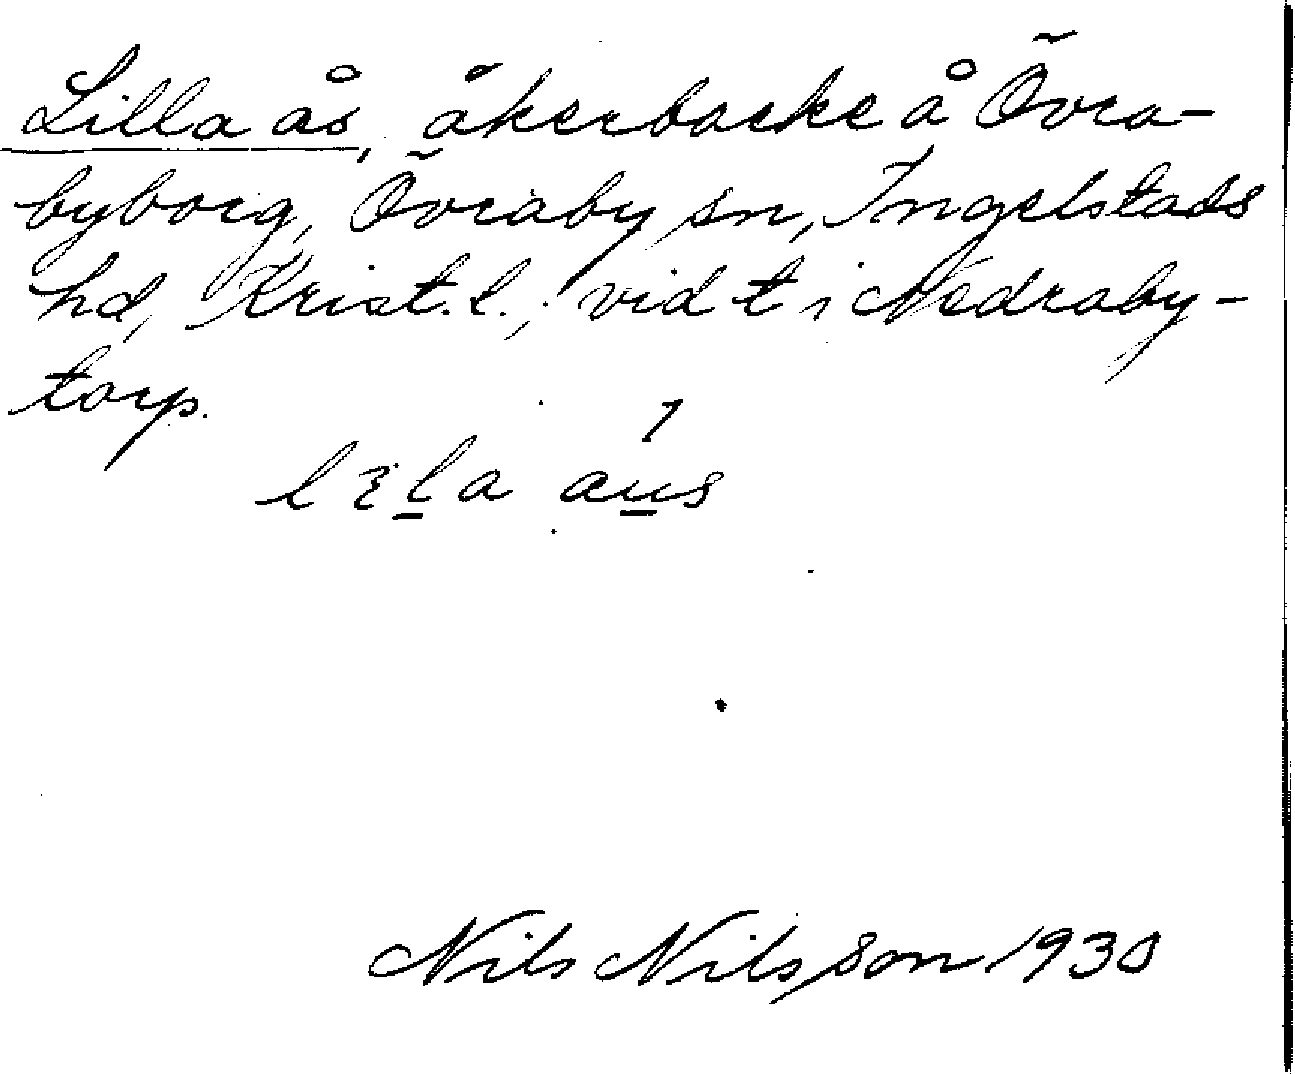 Lilla ås, åkerbacke å Övra-
byborg, Övraby sn, Ingelstads
hd, Krist. l.; vid t i Nedraby-
torp.
lɛla aus
Nils Nilsson 1930